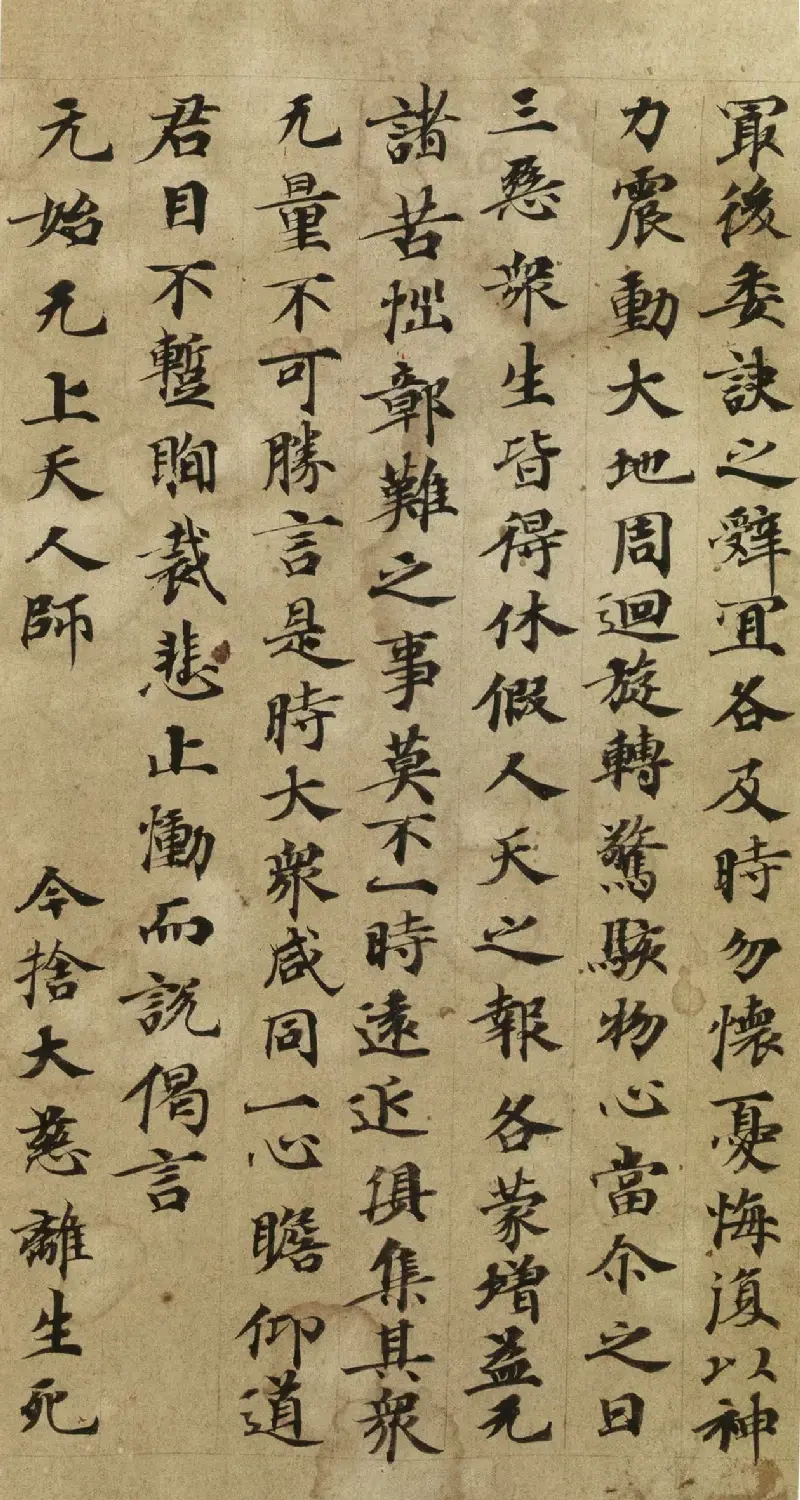 冣後委訣之辤冝各及時勿懐憂悔復以神
力震動大地周迴旋轉驚駭物心當尒之日
三惡衆生皆得休假人天之報各蒙增益无
諸苦惱鄣難之事莫不一時遠近俱集其衆
无量不可勝言是時大衆咸同一心瞻仰道
君目不蹔眴裁悲止慟而說偈言
无始无上天人師 今捨大慈離生死